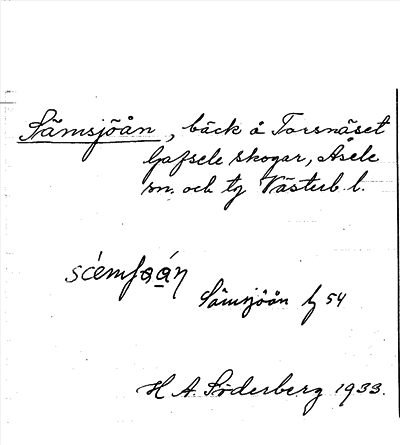 Sämsjöån, bäck å Torsnäset
Gafsele skogar, Åsele
sn. och tg Västerb. l.
Sämsjöån Ly 54
H. A. Söderberg 1933.